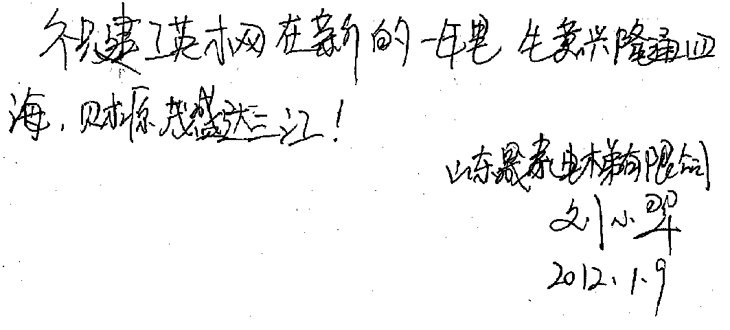 祝建工英才网在新的一年里 生意兴隆通四
海,财源茂盛达三江!
山东晟豪电梯有限公司
刘小翠
2012.1.9